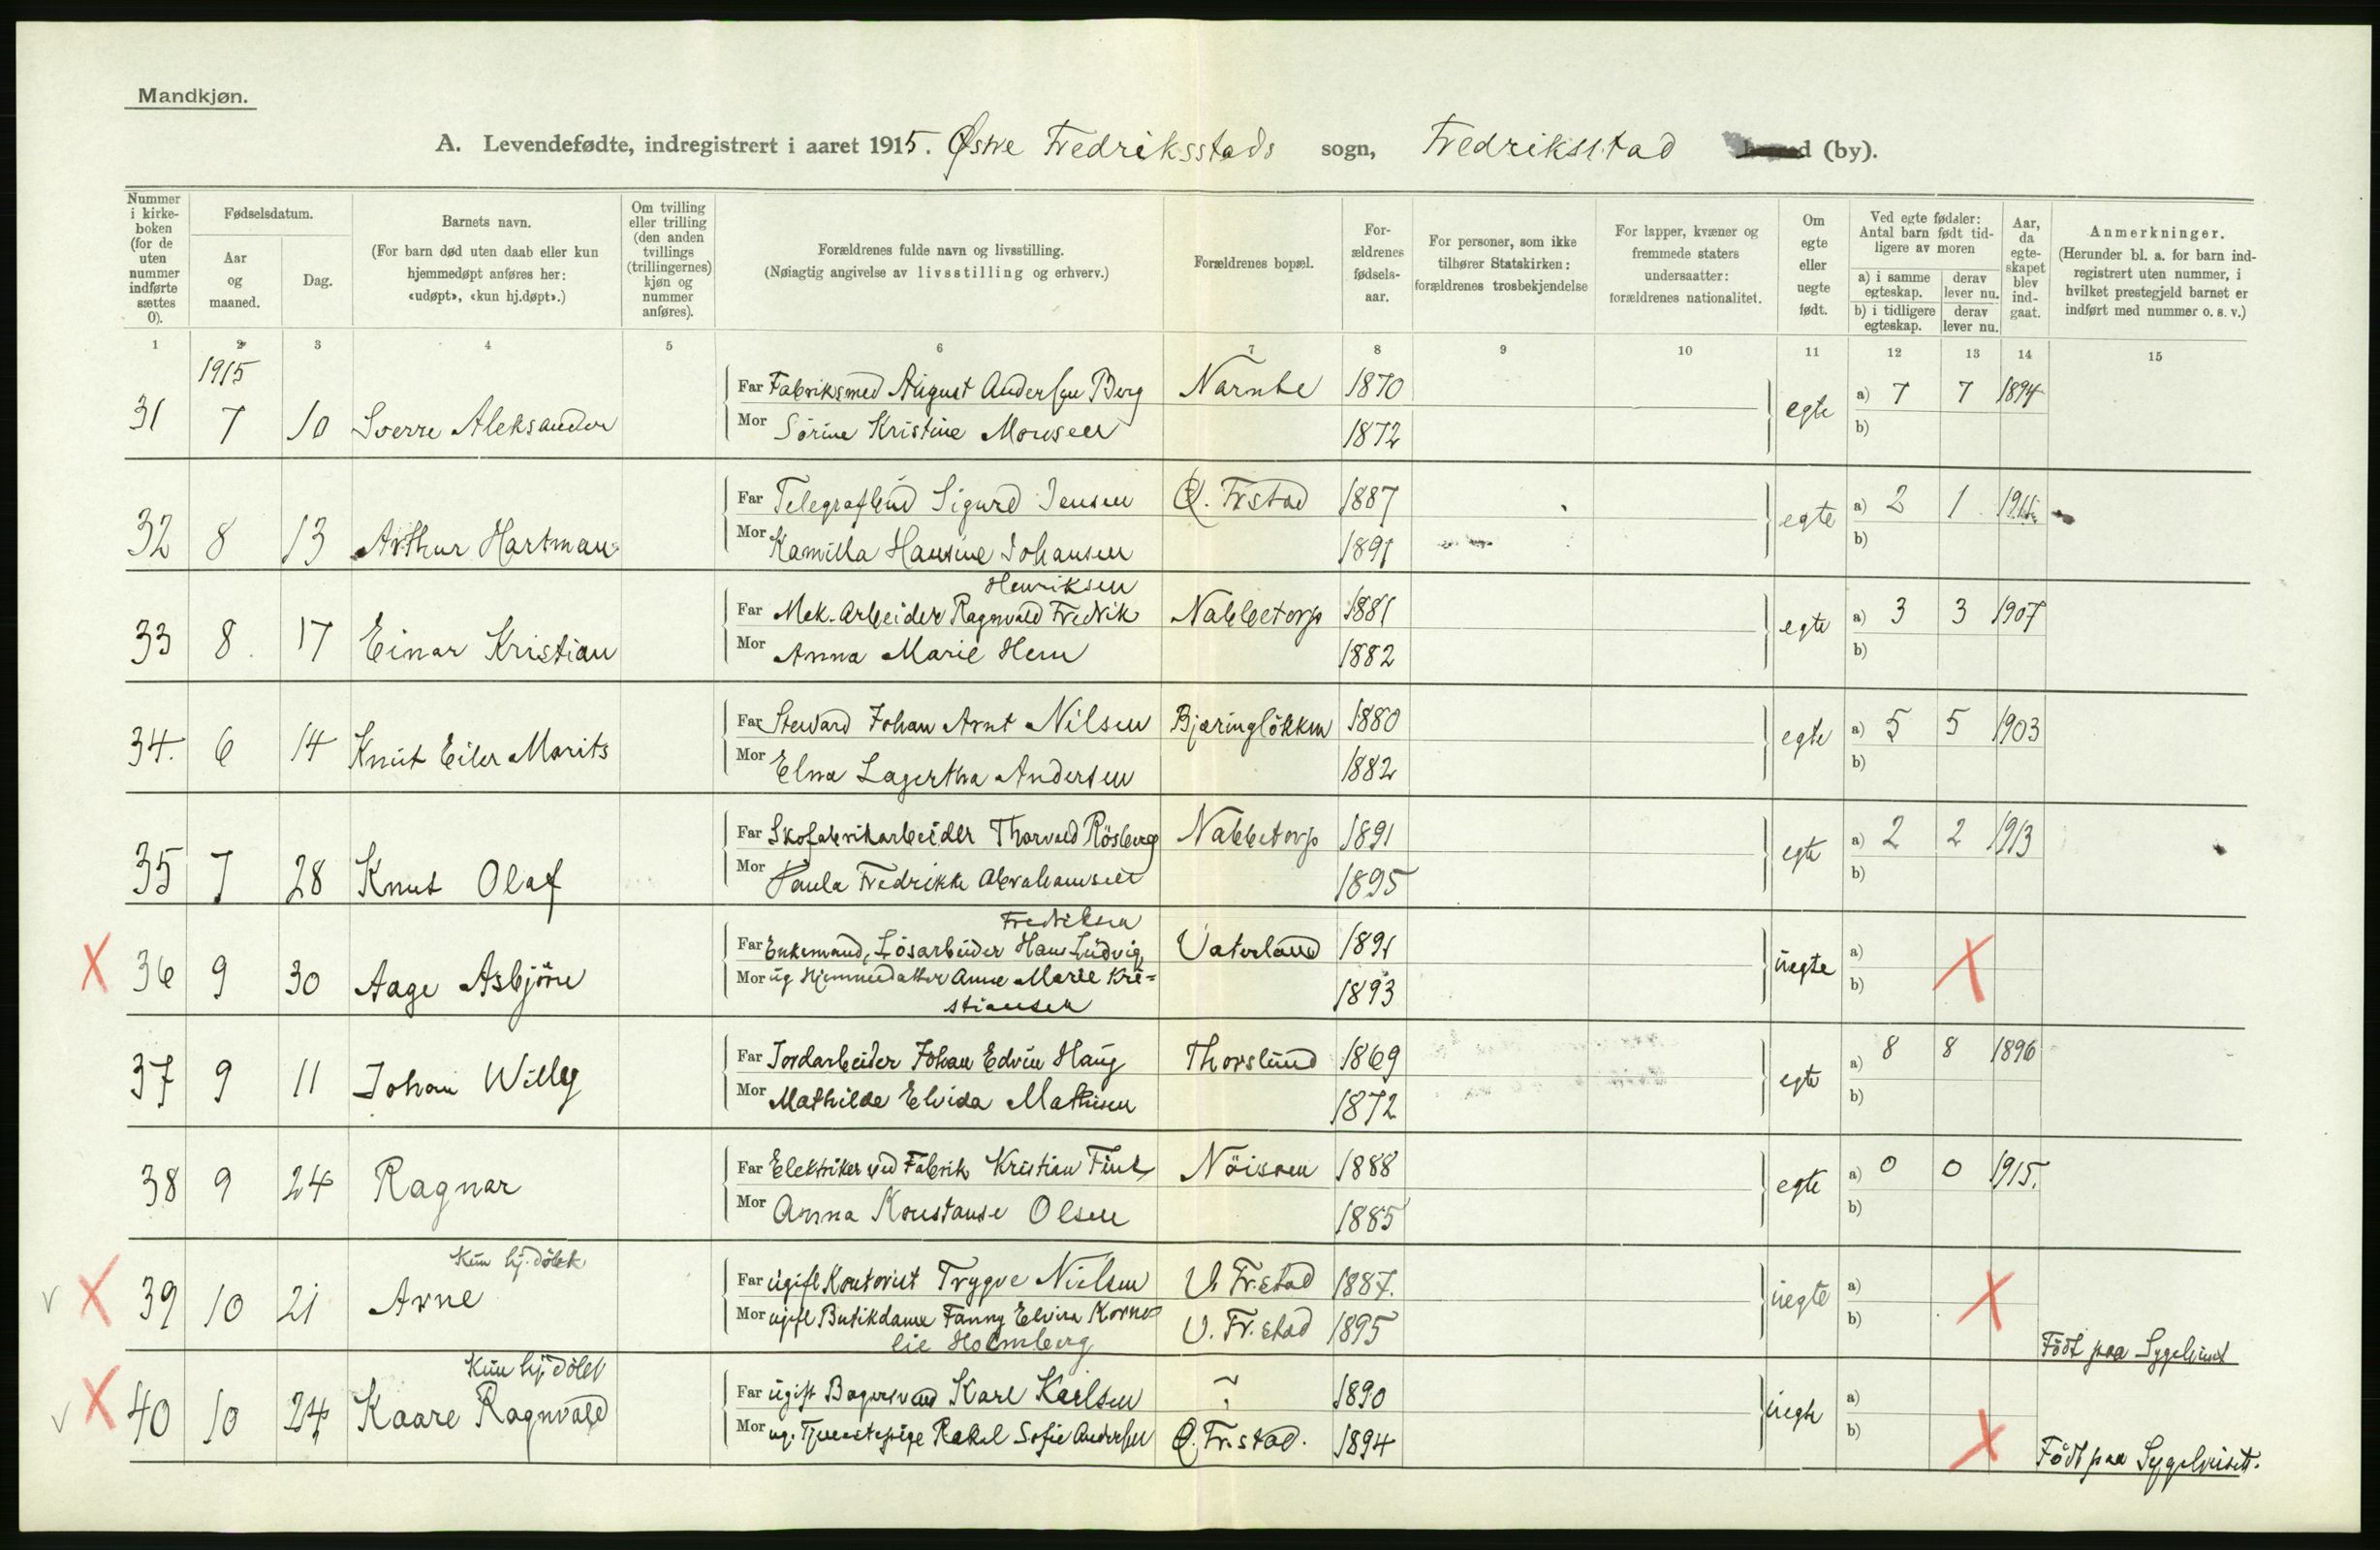 Mandkjøn.
A. Levendefødte, indregistrert i aaret 1915. Østre Fredriksstads sogn, Fredriksstad herred (by).
Nummer i kirke-boken (for de uten nummer indførte sættes 0).
Fødselsdatum.
Aar og maaned.
Dag.
Barnets navn.
(For barn død uten daab eller kun hjemmedøpt anføres her: «udøpt», «kun hj.døpt».)
Om tvilling eller trilling (den anden tvillings (trillingernes) kjøn og nummer anføres).
Forældrenes fulde navn og livsstilling.
(Nøiagtig angivelse av livsstilling og erhverv.)
Forældrenes bopæl.
For-ældrenes fødsels-aar.
For personer, som ikke tilhører Statskirken: forældrenes trosbekjendelse
For lapper, kvæner og fremmede staters undersaatter: forældrenes nationalitet.
Om egte eller uegte født.
Ved egte fødsler: Antal barn født tid-ligere av moren
a) i samme egteskap. derav lever nu.
b) i tidligere egteskap. derav lever nu.
Aar, da egte-skapet blev ind-gaat.
Anmerkninger.
(Herunder bl. a. for barn ind-registrert uten nummer, i hvilket prestegjeld barnet er indført med nummer o. s. v.)
1 2 3 4 5 6 7 8 9 10 11 12 13 14 15
1915
Far Fabriksmed August Andersen Berg 1870 a) 7 7 1894
31 7 10 Sverre Aleksander Mor Sörine Kristine Monsen 1872 egte b)
Far Sigurd Jensen Ø. Fr.stad 1887 a) 2 1
32 8 13 Arthur Hartman Mor Kamilla Hansine Johansen 1891 egte b)
Henriksen
Far Mek. Arbeider Ragnvald Fredrik Nabbetorp 1881 a) 3 3 1907
33 8. 17 Einar Kristian Mor Anna Marie Hem 1882 egte b)
Far Steward Johan Arnt Nilsen Bjæringlökken 1880 a) 5 5 1903
34. 6 14 Knut Eiler Marits Mor Elna Lagertha Andersen 1882 egte b)
Far Skofabrikarbeider Thorvald Rösberg Nabbetorp 1891 a) 2 2 1913
35 7 28 Knut Olaf Mor Paula Fredrikke Abrahamsen 1895 egte b)
Fredriksen
Far Enkemand, Lösarbeider Hans Ludvig Vaterland 1891 a)
X 36 9 30 Aage Asbjörn Mor ug. Hjemmedatter Anna Marie Kri-stiansen 1893 uegte b) X
Far Jordarbeider Johan Edvin Haug Thorslund 1869 a) 8 8 1896
37 9 11 Johan Willy Mor Mathilde Elvida Mathisen 1872 egte b)
Far Elektriker ved Fabrik Kristian Nöisom 1888 a) 0 0 1915.
38 9 24 Ragnar Mor Anna Konstanse Olsen 1885 egte b)
Kun hj.döbt
Far ugift Kontorist Trygve Nielsen V. Fr.stad 1887. a)
V X 39 10 21 Arne Mor ugift Butikdame Fanny Elvira Korne-lie Holmberg V. Fr.stad 1895 uegte b) X Född paa Sygehuset
Kun hj.döbt
Far ugift Bagersvend Karl Karlsen ? 1890 a)
V X 40 10 24 Kaare Ragnvald Mor ug. Tjenestepige Rakel Sofie Andersen Ø. Fr.stad. 1894 uegte b) X Födt paa Sygehuset.